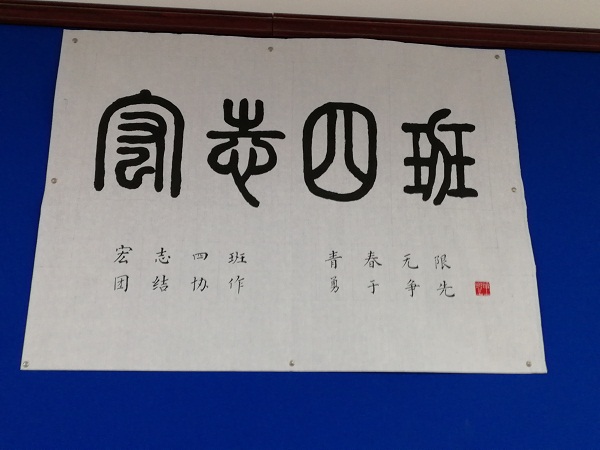 宏志四班
宏志四班 青春无限
团结协作 勇于争先